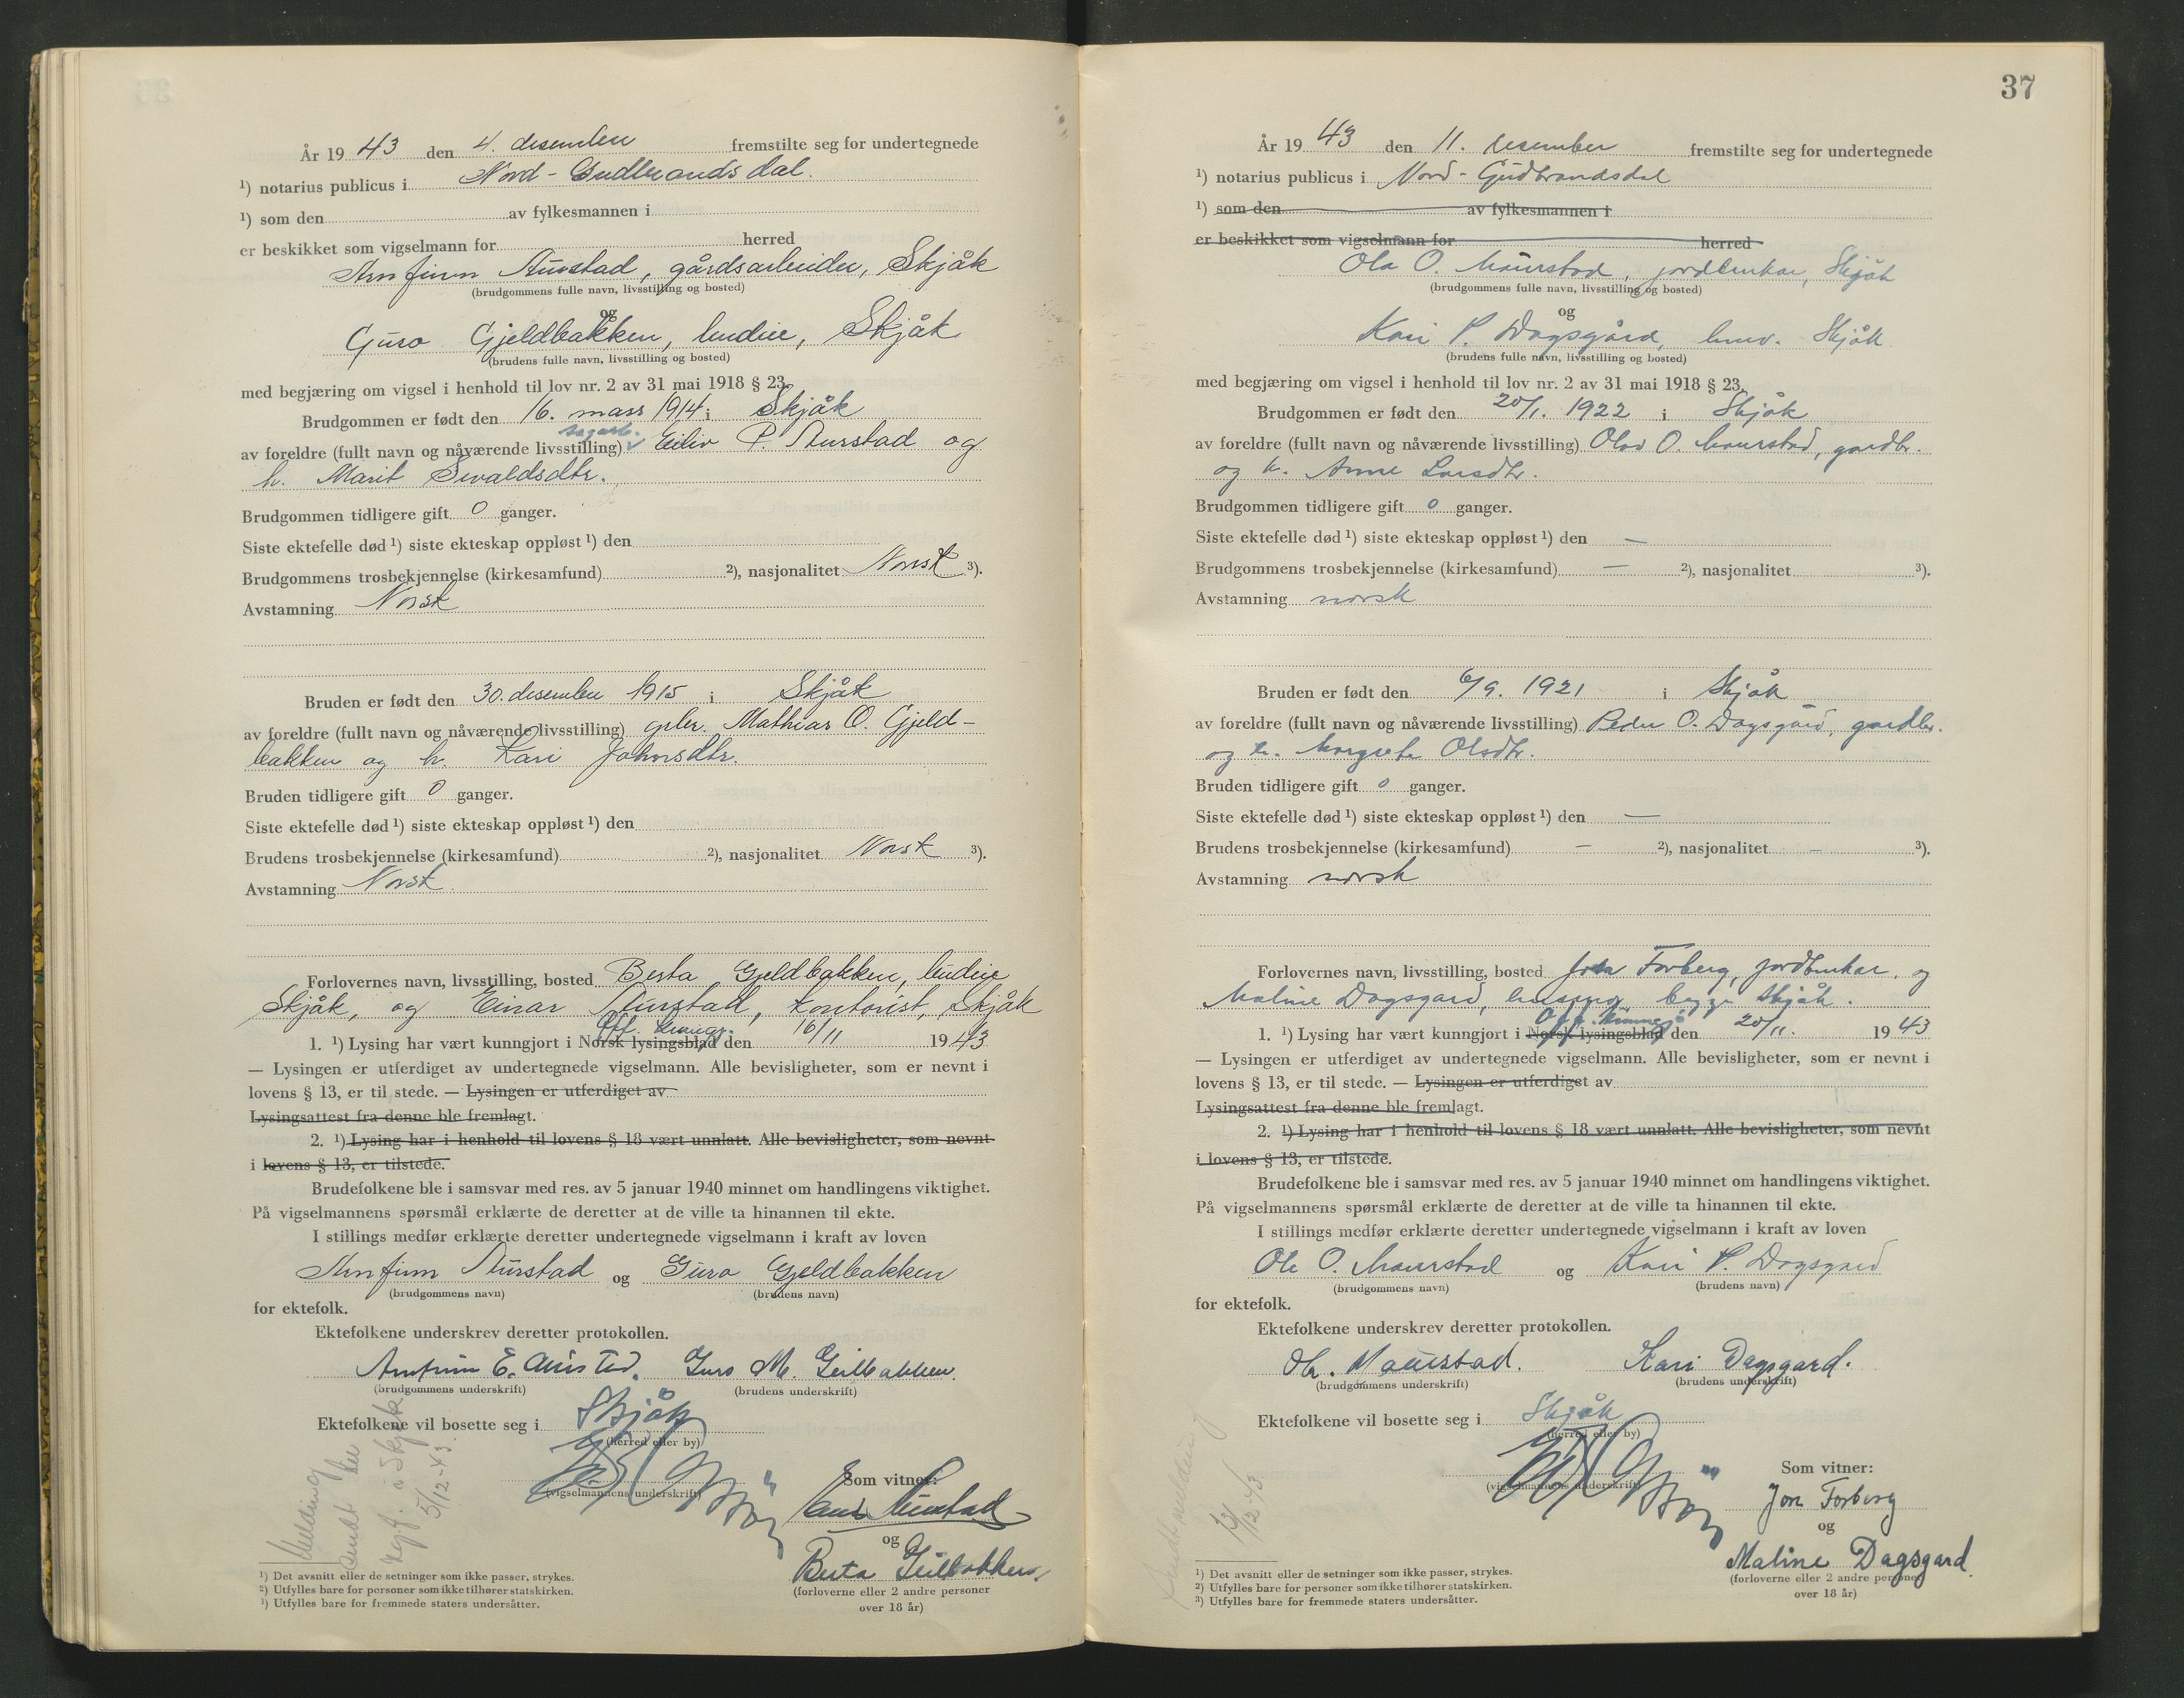 År 19 43 den 4. desember fremstilte seg for undertegnede
¹) notarius publicus i Nord-Gudbrandsdal.
¹) som den av fylkesmannen i
er beskikket som vigselmann for herred
Arnfinn Aurstad, gårdsarbeider, Skjåk
(brudgommens fulle navn, livsstilling og bosted)
og
Guro Gjeldbakken, budeie, Skjåk
(brudens fulle navn, livsstilling og bosted)
med begjæring om vigsel i henhold til lov nr. 2 av 31 mai 1918 § 23.
Brudgommen er født den 16. mars 1914 i Skjåk
av foreldre (fullt navn og nåværende livsstilling) sagarb. Eiliv P. Aurstad og
h. Marit Sivaldsdtr.
Brudgommen tidligere gift 0 ganger.
Siste ektefelle død ¹) siste ekteskap oppløst ¹) den
Brudgommens trosbekjennelse (kirkesamfund) ²), nasjonalitet Norsk ³).
Avstamning Norsk
Bruden er født den 30. desember 1915 i Skjåk
av foreldre (fullt navn og nåværende livsstilling) gbr. Mathias O. Gjeld-
bakken og h. Kari Johnsdtr.
Bruden tidligere gift 0 ganger.
Siste ektefelle død ¹) siste ekteskap oppløst ¹) den
Brudens trosbekjennelse (kirkesamfund) ²), nasjonalitet Norsk ³).
Avstamning Norsk.
Forlovernes navn, livsstilling, bosted Berta Gjeldbakken, budeie
Skjåk, og Einar Aurstad, kontorist, Skjåk
Off. kunngj.
1. ¹) Lysing har vært kunngjort i Norsk lysingsblad den 16/11 19 43
— Lysingen er utferdiget av undertegnede vigselmann. Alle bevisligheter, som er nevnt i
lovens § 13, er til stede. — Lysingen er utferdiget av
Lysingsattest fra denne ble fremlagt.
2. ¹) Lysing har i henhold til lovens § 18 vært unnlatt. Alle bevisligheter, som nevnt
i lovens § 13, er tilstede.
Brudefolkene ble i samsvar med res. av 5 januar 1940 minnet om handlingens viktighet.
På vigselmannens spørsmål erklærte de deretter at de ville ta hinannen til ekte.
I stillings medfør erklærte deretter undertegnede vigselmann i kraft av loven
Arnfinn Aurstad og Guro Gjeldbakken
(brudgommens navn) (brudens navn)
for ektefolk.
Ektefolkene underskrev deretter protokollen.
Arnfinn E. Aurstad. Guro M. Geilbakken.
(brudgommens underskrift) (brudens underskrift)
Ektefolkene vil bosette seg i Skjåk
(herred eller by)
(vigselmannens underskrift)
Som vitner:
Einar Aurstad
og
Berta Geilbakken.
(forloverne eller 2 andre personer
over 18 år)
Melding
sendt
i Skjåk
5/12-43.
¹) Det avsnitt eller de setninger som ikke passer, strykes.
²) Utfylles bare for personer som ikke tilhører statskirken.
³) Utfylles bare for fremmede staters undersåtter.
37
År 19 43 den 11. desember fremstilte seg for undertegnede
¹) notarius publicus i Nord-Gudbrandsdal
¹) som den av fylkesmannen i
er beskikket som vigselmann for herred
Ola O. Maurstad, jordbruker, Skjåk
(brudgommens fulle navn, livsstilling og bosted)
og
Kari P. Dagsgård, husv. Skjåk
(brudens fulle navn, livsstilling og bosted)
med begjæring om vigsel i henhold til lov nr. 2 av 31 mai 1918 § 23.
Brudgommen er født den 20/1. 1922 i Skjåk
av foreldre (fullt navn og nåværende livsstilling) Olav O. Maurstad, gardbr.
og h. Anne Larsdtr.
Brudgommen tidligere gift 0 ganger.
Siste ektefelle død ¹) siste ekteskap oppløst ¹) den —
Brudgommens trosbekjennelse (kirkesamfund) — ²), nasjonalitet ³).
Avstamning norsk
Bruden er født den 6/9. 1921 i Skjåk
av foreldre (fullt navn og nåværende livsstilling) Peder O. Dagsgård, gardbr.
og h. Margrete Olsdtr.
Bruden tidligere gift 0 ganger.
Siste ektefelle død ¹) siste ekteskap oppløst ¹) den —
Brudens trosbekjennelse (kirkesamfund) — ²), nasjonalitet — ³).
Avstamning norsk
Forlovernes navn, livsstilling, bosted Jon Forberg, jordbruker, og
Maline Dagsgard, begge Skjåk.
Off. kunngj.
1. ¹) Lysing har vært kunngjort i Norsk lysingsblad den 20/11. 19 43
— Lysingen er utferdiget av undertegnede vigselmann. Alle bevisligheter, som er nevnt i
lovens § 13, er til stede. — Lysingen er utferdiget av
Lysingsattest fra denne ble fremlagt.
2. ¹) Lysing har i henhold til lovens § 18 vært unnlatt. Alle bevisligheter, som nevnt
i lovens § 13, er tilstede.
Brudefolkene ble i samsvar med res. av 5 januar 1940 minnet om handlingens viktighet.
På vigselmannens spørsmål erklærte de deretter at de ville ta hinannen til ekte.
I stillings medfør erklærte deretter undertegnede vigselmann i kraft av loven
Ola O. Maurstad og Kari P. Dagsgard
(brudgommens navn) (brudens navn)
for ektefolk.
Ektefolkene underskrev deretter protokollen.
Ola. Maurstad. Kari Dagsgard.
(brudgommens underskrift) (brudens underskrift)
Ektefolkene vil bosette seg i Skjåk
(herred eller by)
(vigselmannens underskrift)
Som vitner:
Jon Forberg
og
Maline Dagsgard.
(forloverne eller 2 andre personer
over 18 år)
Sendt melding
¹) Det avsnitt eller de setninger som ikke passer, strykes.
²) Utfylles bare for personer som ikke tilhører statskirken.
³) Utfylles bare for fremmede staters undersåtter.